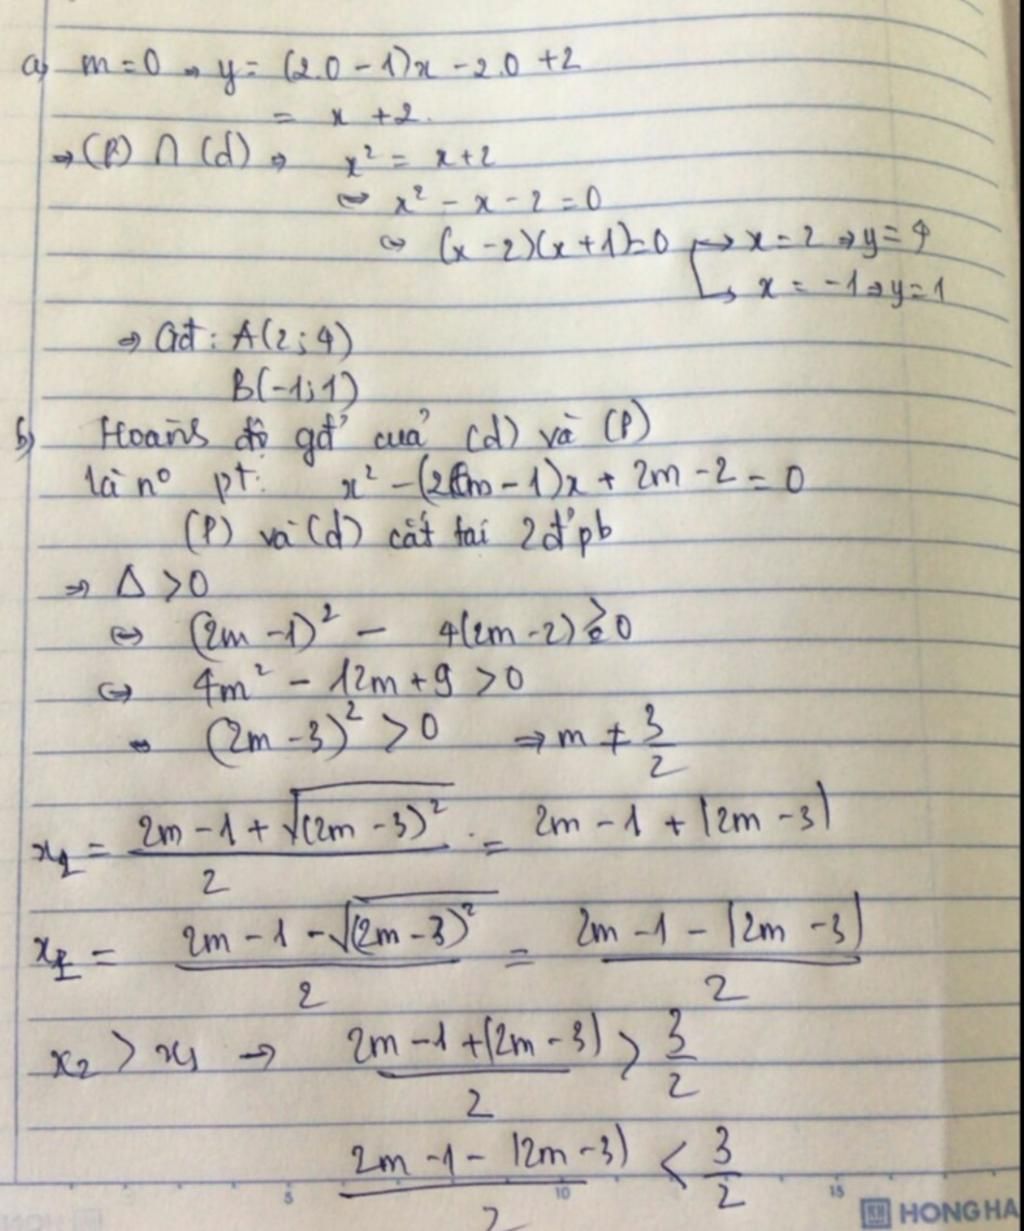 a) m = 0 → y = (2.0 - 1)x - 2.0 + 2
= x + 2.
⇒ (P) ∩ (d) ⇒ x² = x + 2
⇔ x² - x - 2 = 0
⇔ (x - 2)(x + 1) = 0 → x = 2 ⇒ y = 4
→ x = -1 ⇒ y = 1
⇒ Gđ : A(2 ; 4)
B(-1 ; 1)
b) Hoành độ gđ' của (d) và (P)
là n° pt: x² - (2m - 1)x + 2m - 2 = 0
(P) và (d) cắt tại 2 đ' pb
⇒ Δ > 0
⇔ (2m - 1)² - 4(2m - 2) > 0
⇔ 4m² - 12m + 9 > 0
(2m - 3)² > 0 ⇒ m ≠ 3/2
x₂ = (2m - 1 + √(2m - 3)²)/2 = 2m - 1 + |2m - 3|
x₁ = (2m - 1 - √(2m - 3)²)/2 = (2m - 1 - |2m - 3|)/2
x₂ > x₁ → (2m - 1 + |2m - 3|)/2 > 3/2
(2m - 1 - |2m - 3|)/2 < 3/2
5 10 15
HONG HA